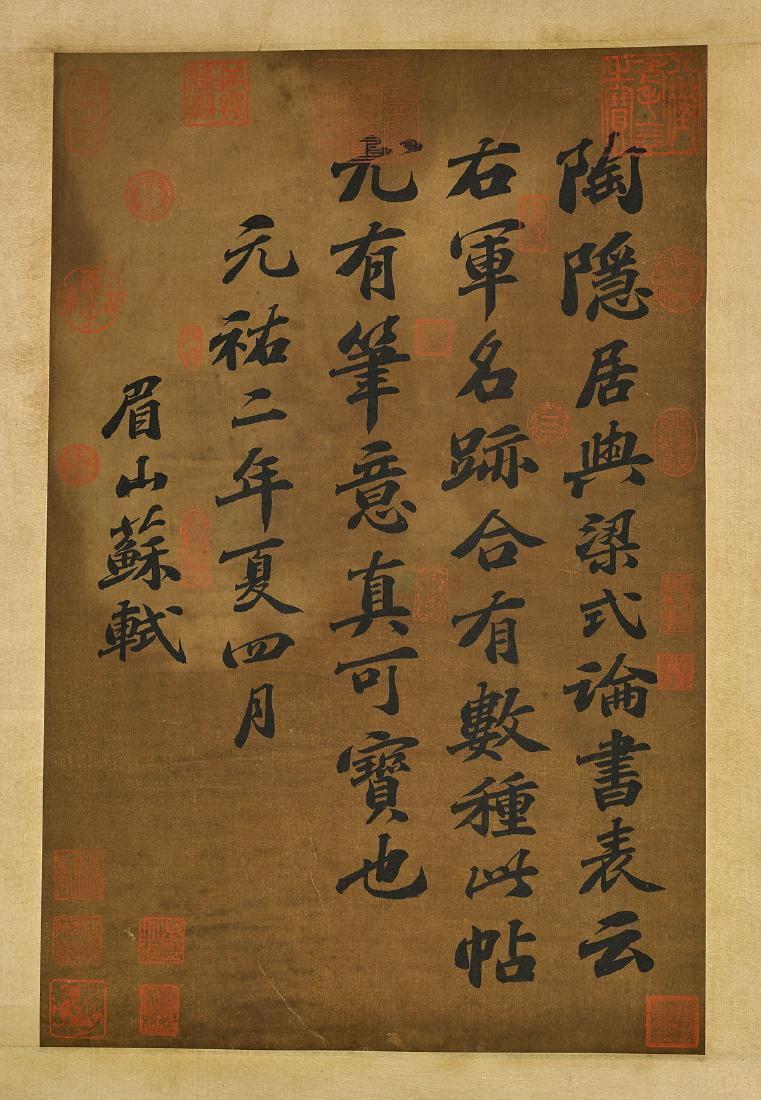 陶隱居與梁式論書表云
右軍名跡合有數種此帖
尤有筆意真可寶也
元祐二年夏四月
眉山蘇軾